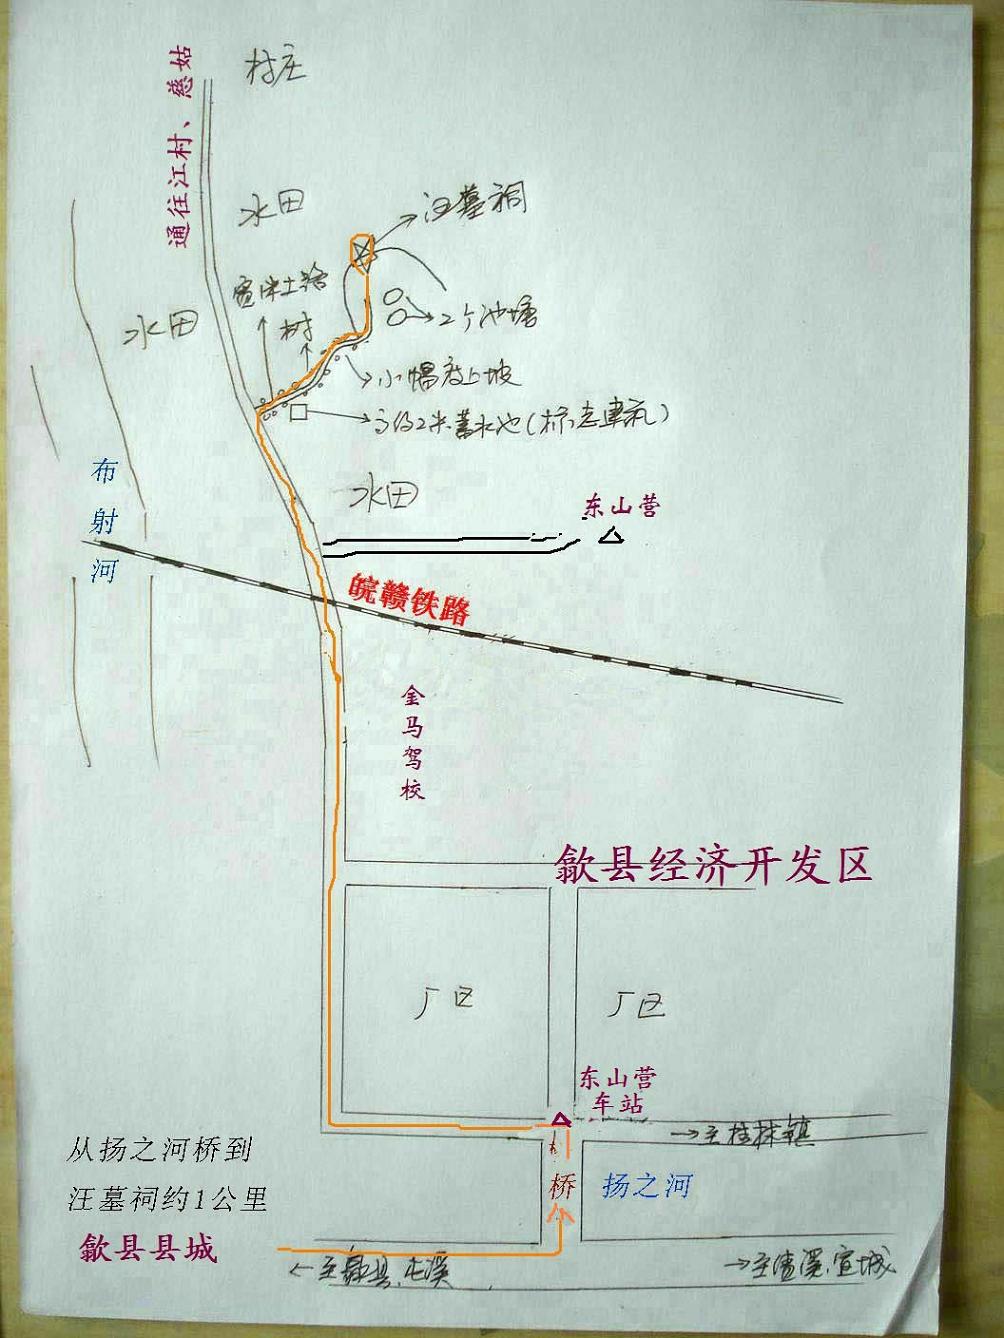 村庄
通往江村、慈姑
水田
汪墓祠
宽1米土路
水田
树
2个池塘
小幅度上坡
高约2米蓄水池(标志建筑)
布射河
水田
东山营
皖赣铁路
金马驾校
歙县经济开发区
厂区
厂区
东山营
车站
→至桂林镇
从扬之河桥到
汪墓祠约1公里
桥
扬之河
歙县县城
←至歙县.屯溪
→至 宣城